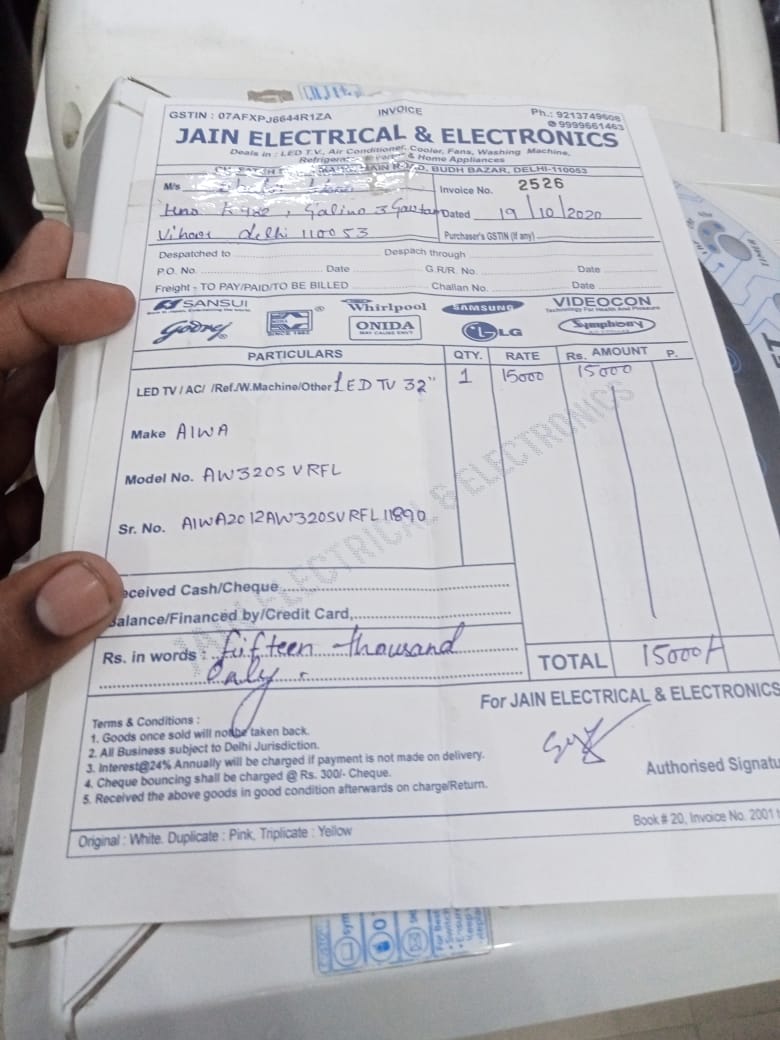 GSTIN : 07AFXPJ6644R1ZA INVOICE Ph.: 9213749608
9999661463
JAIN ELECTRICAL & ELECTRONICS
Deals in : LED T.V., Air Conditioner, Cooler, Fans, Washing Machine,
& Home Appliances
BUDH BAZAR, DELHI-110053
M/s
Invoice No. 2526
Gautam
Dated 19/10/2020
Vihar delhi 110053 Purchaser's GSTIN (if any)
Despatched to Despach through
P.O. No. Date G.R/R. No. Date
Freight - TO PAY/PAID/TO BE BILLED Challan No. Date
SANSUI Whirlpool SAMSUNG VIDEOCON
Technology For Health And Pleasure
Godrej SINCE 1962 ONIDA LG Symphony
PARTICULARS QTY. RATE Rs. AMOUNT P.
LED TV / AC/ /Ref./W.Machine/Other LED TV 32" 1 15000 15000
Make AIWA
Model No. AW320SVRFL
Sr. No. AIWA2012AW320SVRFL11890
JAIN ELECTRICAL & ELECTRONICS
eceived Cash/Cheque
Balance/Financed by/Credit Card,
Rs. in words : fifteen thousand
only. TOTAL 15000/-
For JAIN ELECTRICAL & ELECTRONICS
Terms & Conditions :
1. Goods once sold will not be taken back.
2. All Business subject to Delhi Jurisdiction.
3. Interest@24% Annually will be charged if payment is not made on delivery.
4. Cheque bouncing shall be charged @ Rs. 300/- Cheque.
5. Received the above goods in good condition afterwards on charge/Return.
Authorised Signatu
Original : White. Duplicate : Pink, Triplicate : Yellow Book # 20, Invoice No. 2001